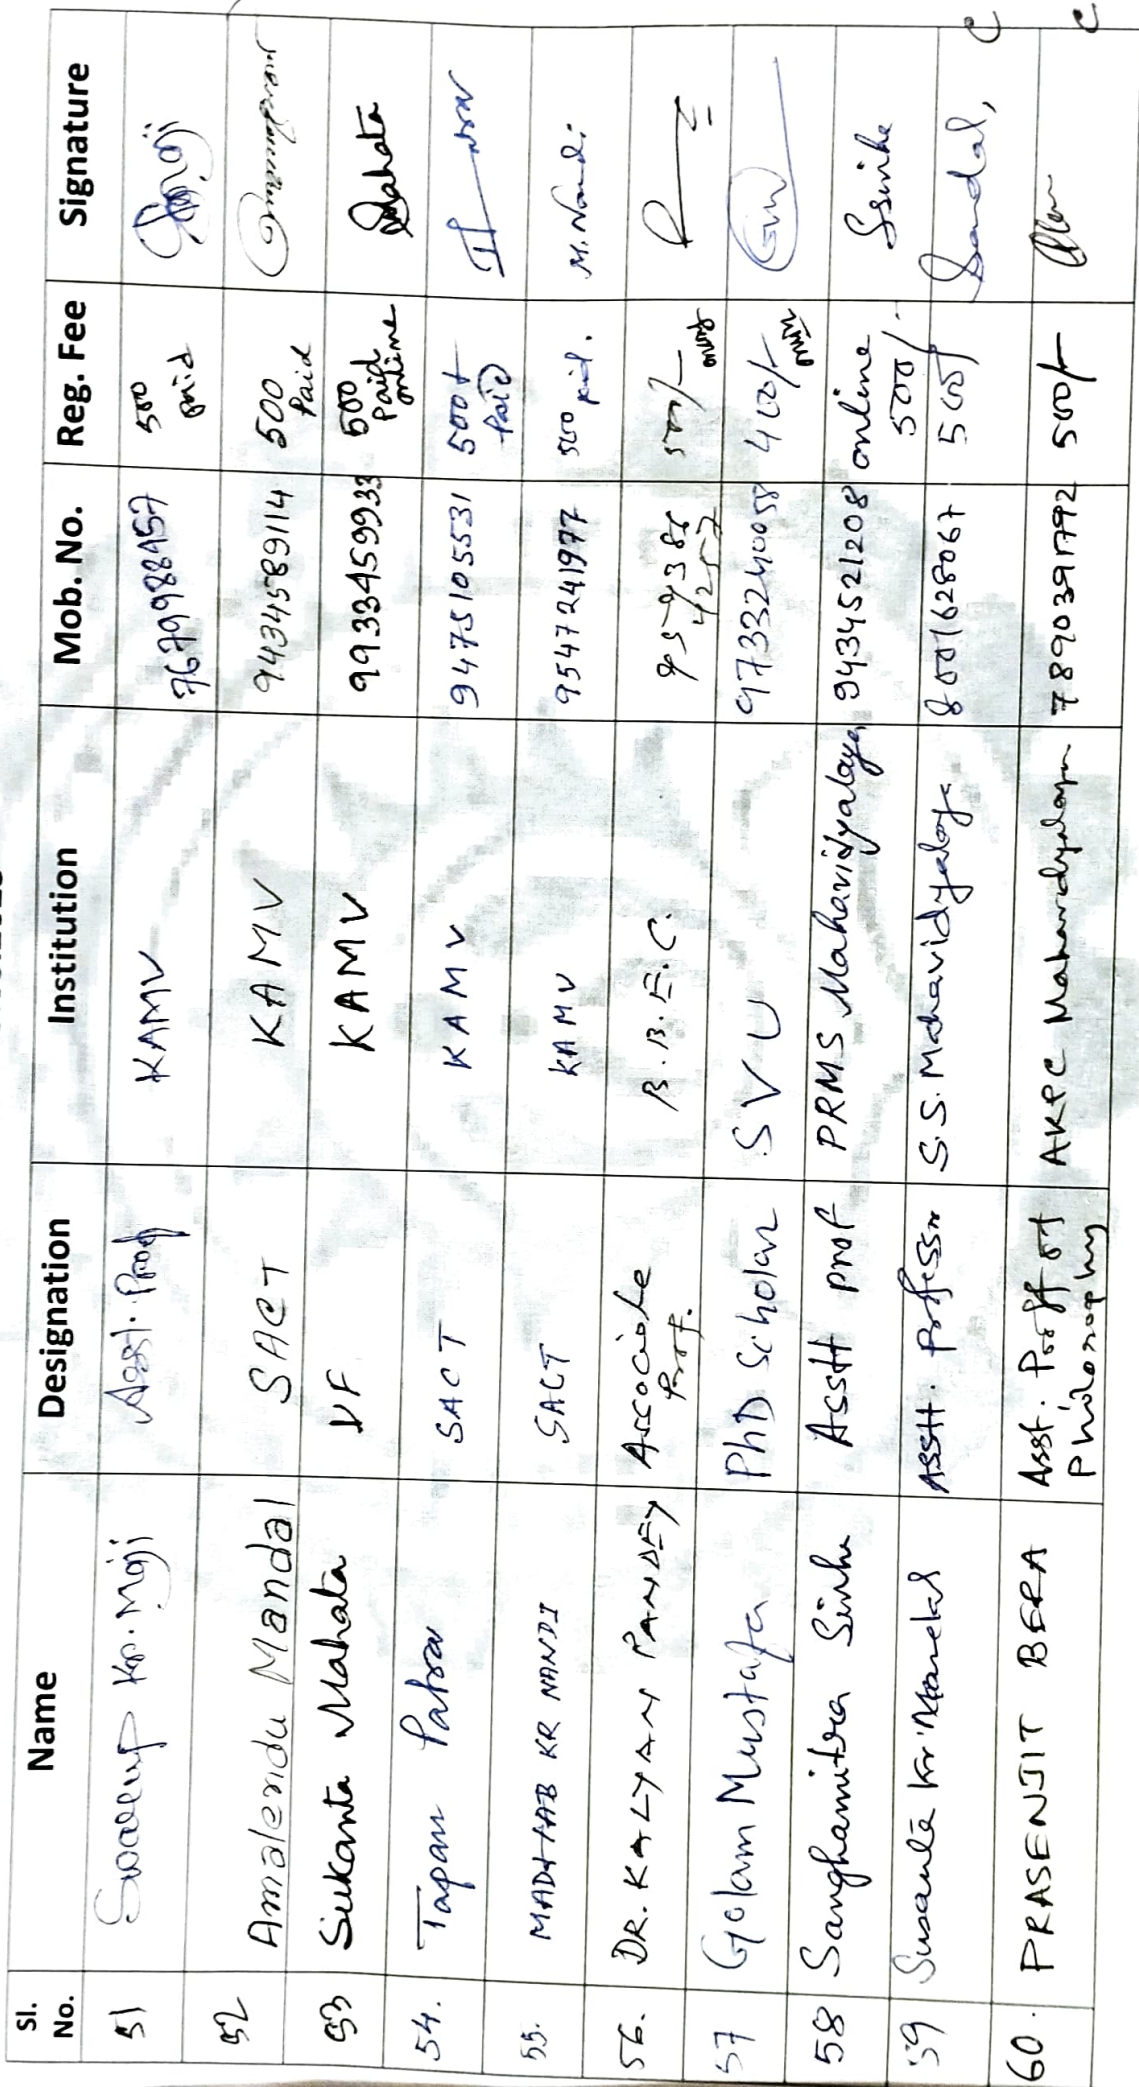 Sl. No. Name Designation Institution Mob. No. Reg. Fee Signature
51 Swarup Kr. Maji Asst. Prof KAMV 7679988457 500 paid
52 Amalendu Mandal SACT KAMV 9434589114 500 Paid
53 Sukanta Mahata VF KAMV 9933459933 500 Paid online Mahata
54. Tapan Patra SACT KAMV 9475105531 500/- Paid
55. MADHAB KR NANDI SACT KAMV 9547241977 500 paid. M. Nandi
56. DR. KALYAN PANDEY Associate Prof. B.B.E.C. 500/-
57 Golam Mustafa PhD Scholar SVU 9733240058 400/-
58 Sanghamitra Sinha Asstt prof PRMS Mahavidyalaya 9434521208 online 500/- Ssinha
59 Susanta Kr. Mandal Asstt. Professor S.S. Mahavidyalaya 8001628067 500/-
60. PRASENJIT BERA Asst. Proff of Philosophy AKPC Mahavidyalaya 7890391792 500/-